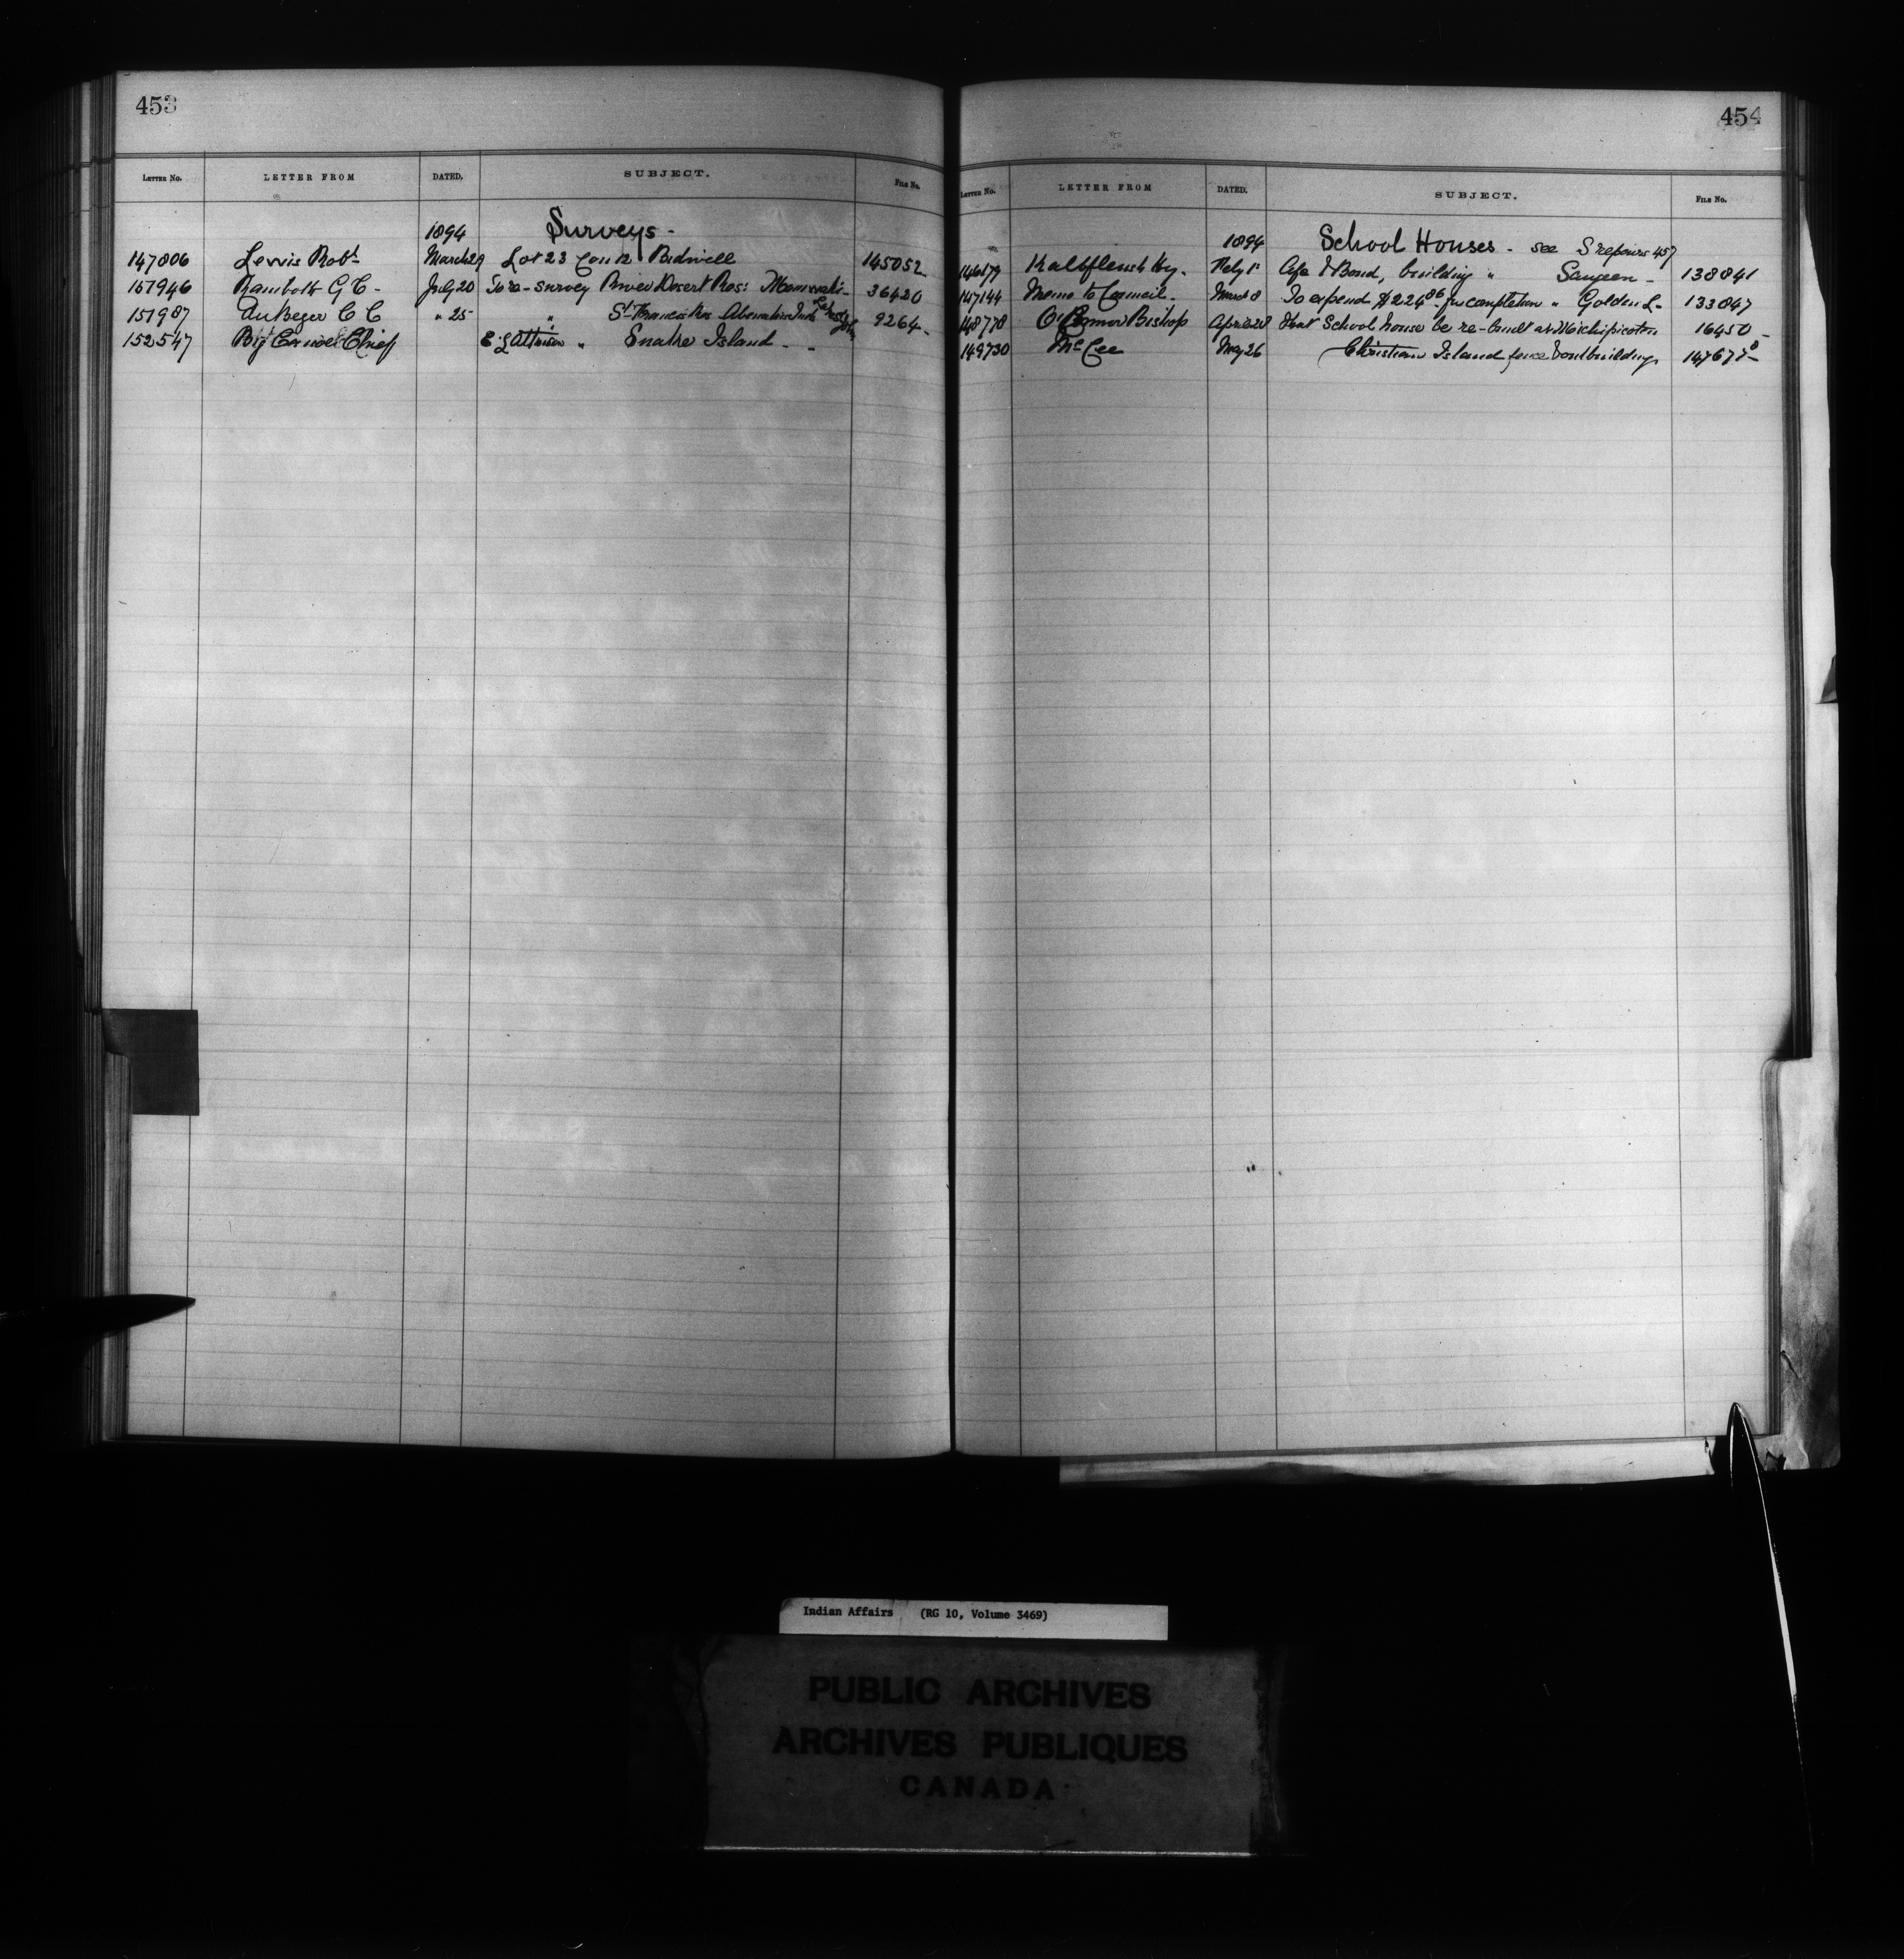 453
LETTER NO. LETTER FROM DATED. SUBJECT. FILE NO.
1894 Surveys -
147806 Lewis Robt March 29 Lot 23 Con 12 Bidwell 145052
151946 Rambolt G C - July 20 To re-survey River Desert Res: Maniwaki - 36420
151987 C C " 25 " St Francis Res Abenakis Inds 9264 -
152547 Big Chief " Island - 
454
LETTER NO. LETTER FROM DATED. SUBJECT. FILE NO.
1894 School Houses - see S repairs 457
146879 Kalbfleisch Hy. Feby 1st & Bond, building " Saugeen - 138841
147144 Memo to Council - March 8 To expend $224 86 for completion " Golden L - 133847
148778 O'Connor Bishop April 28 that School house be re-built at Michipicoten 16450 -
149730 McGee May 26 Christian Island fence & outbuildings 147677 -
Indian Affairs (RG 10, Volume 3469)
PUBLIC ARCHIVES
ARCHIVES PUBLIQUES
CANADA